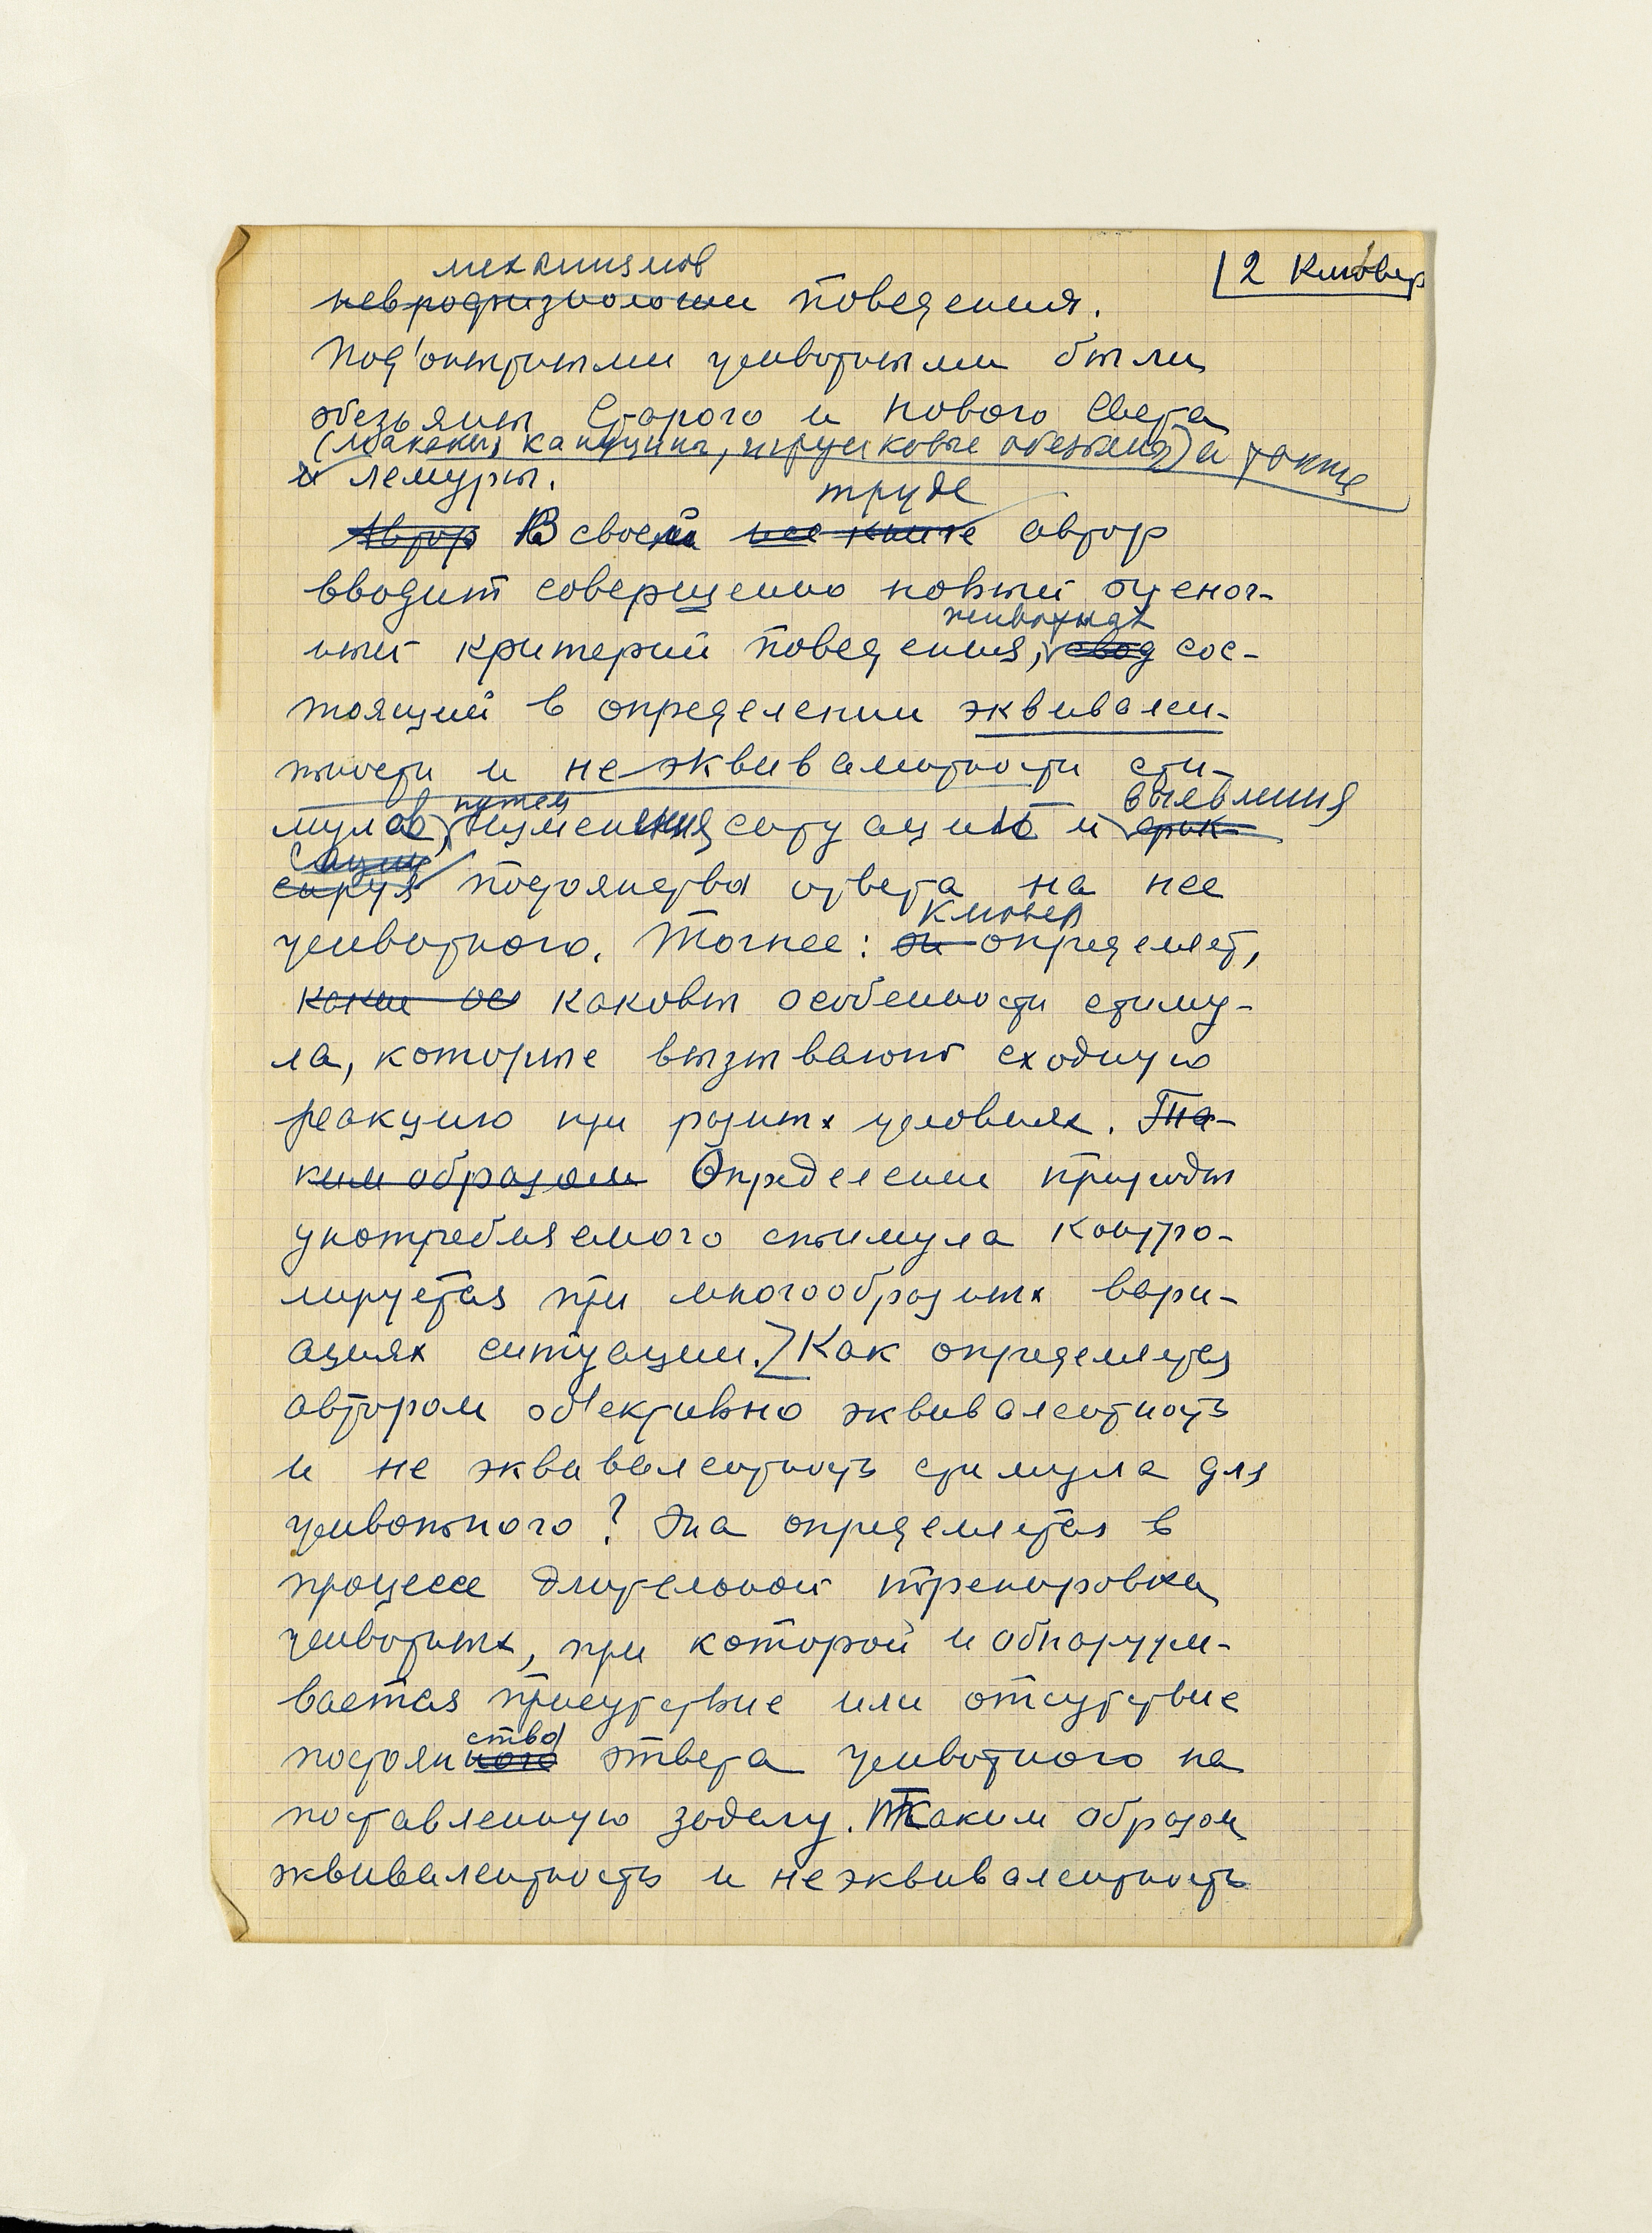 2 Клювер
механизмов
неврофизиологии поведения.
Под'опытными животными были
обезьяны Старого и Нового Света
(макаки, капуцины, паукообразные обезьяны) а также
и лемуры.
труде
Автор В своем автор
вводит совершенно новый оценоч-
животных
ный критерий поведения, сос-
тоящий в определении эквивален-
тности и не эквивалентности сти-
путем выявления
мулов, изменения ситуаций и фик-
сируя постоянства ответа на нее
Клювер
животного. Точнее: он определяет,
какие ос каковы особенности стиму-
ла, которые вызывают сходную
реакцию при разных условиях. Та-
ким образом Определение природы
употребляемого стимула контро-
лируется при многообразных вари-
ациях ситуации. Как определяется
автором об'ективно эквивалентность
и не эквивалентность стимула для
животного? Она определяется в
процессе длительной тренировки
животных, при которой и обнаружи-
вается присутствие или отсутствие
ства
постоянного ответа животного на
поставленную задачу. Таким образом
эквивалентность и неэквивалентность